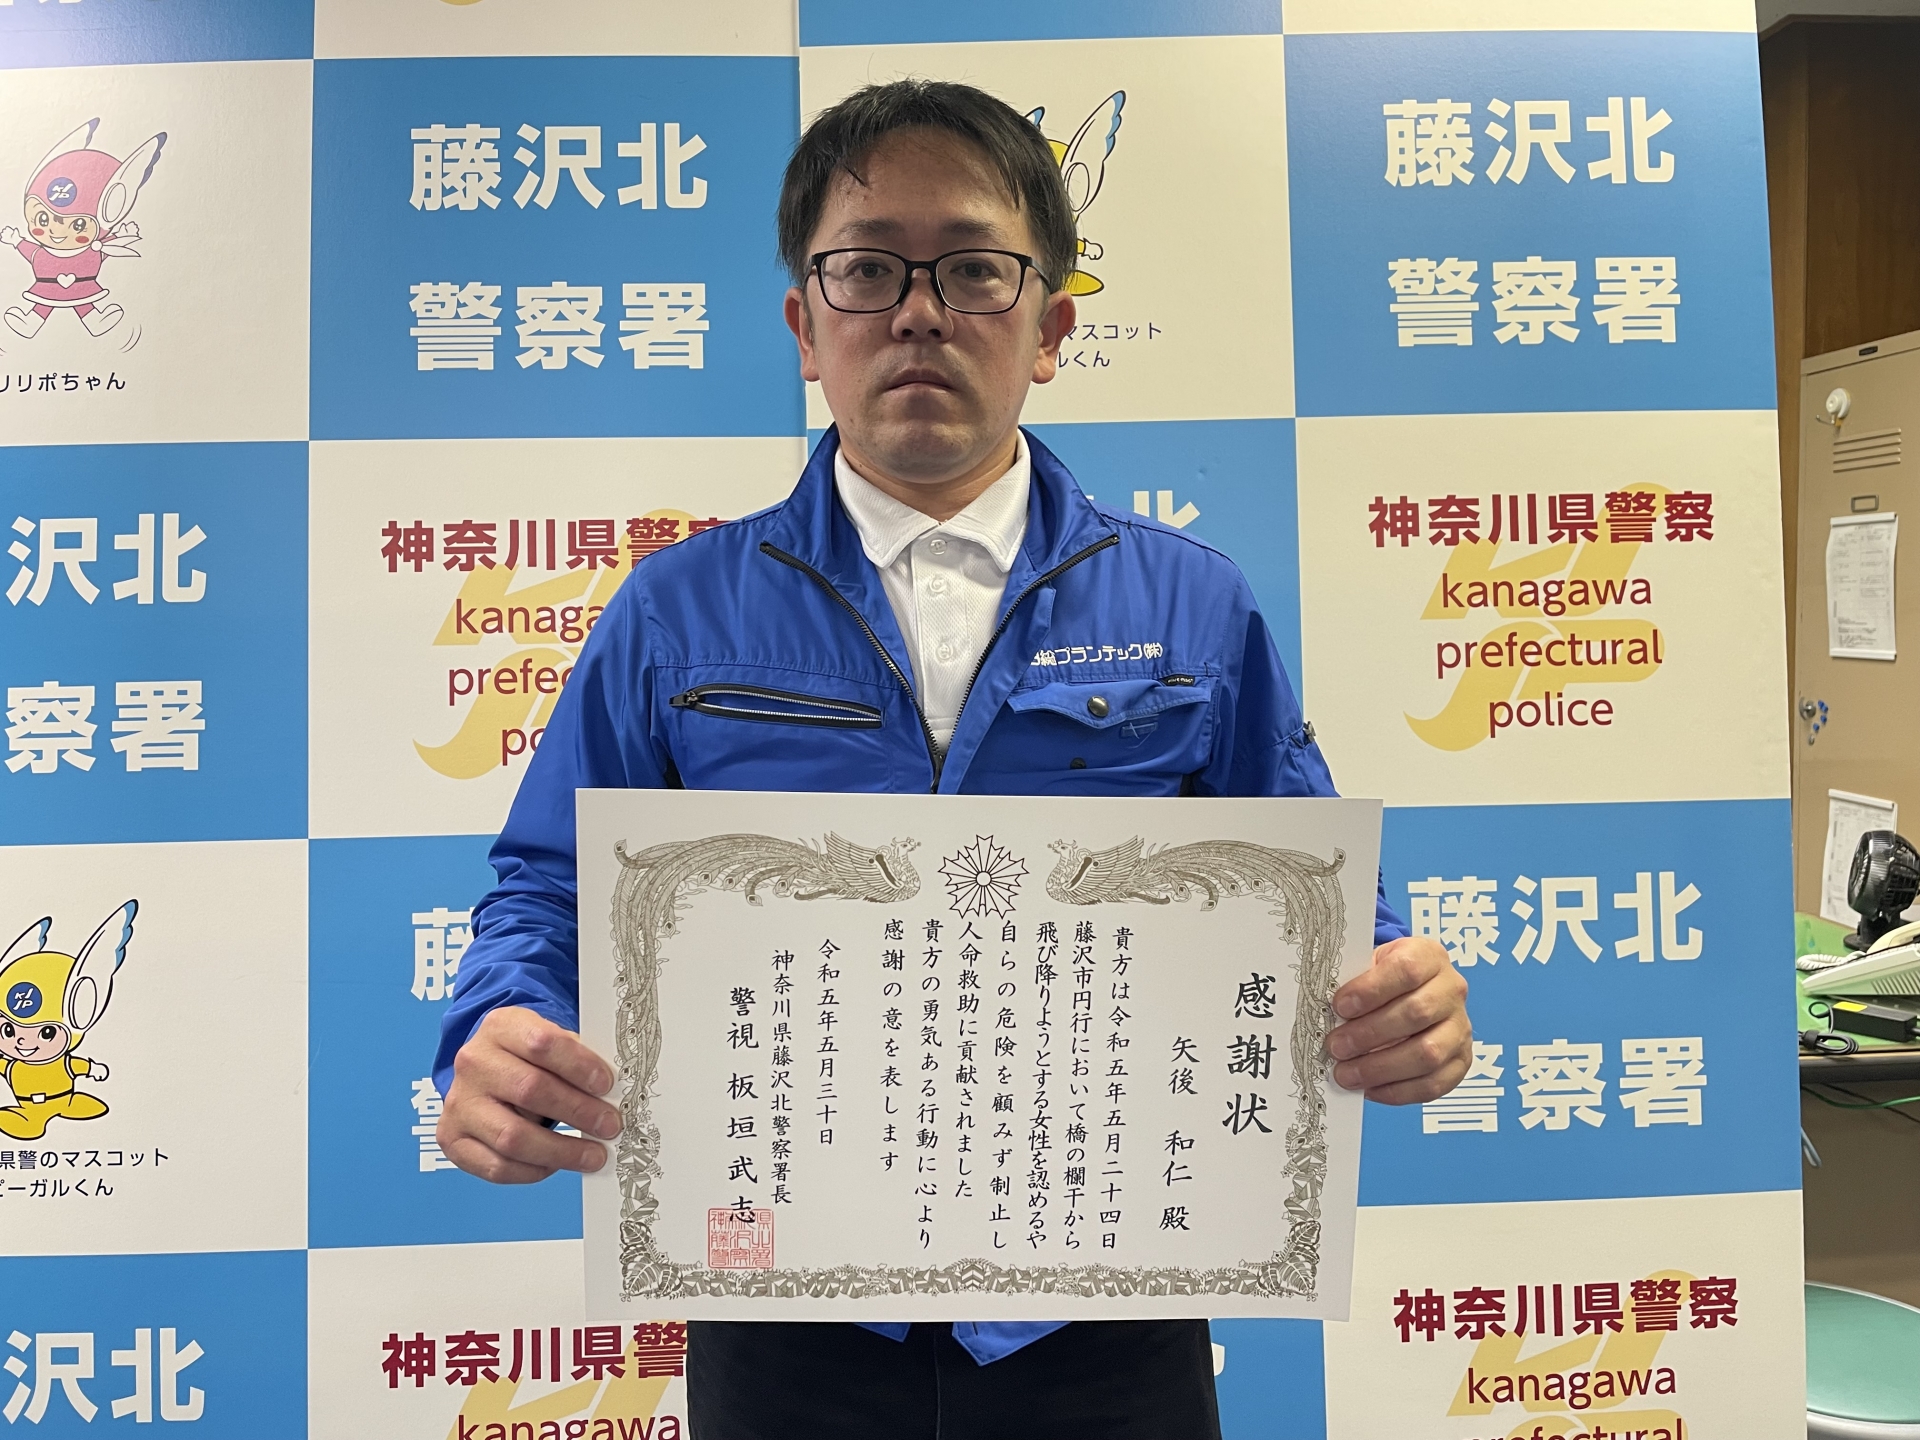 藤沢北
警察署
藤沢北
警察署
リリポちゃん
マスコット
ルくん
沢北
察署
神奈川県警察
kanaga
prefec
po
北
神奈川県警察
kanagawa
prefectural
police
プランテック㈱
感謝状
矢後 和仁 殿
貴方は令和五年五月二十四日
藤沢市円行において橋の欄干から
飛び降りようとする女性を認めるや
自らの危険を顧みず制止し
人命救助に貢献されました
貴方の勇気ある行動に心より
感謝の意を表します
令和五年五月三十日
神奈川県藤沢北警察署長
警視 板垣武志
藤
警
藤沢北
警察署
KJ
JP
KJ
JP
県警のマスコット
ピーガルくん
沢北
神奈川県警
kanagawa
神奈川県警察
kanagawa
prefectural